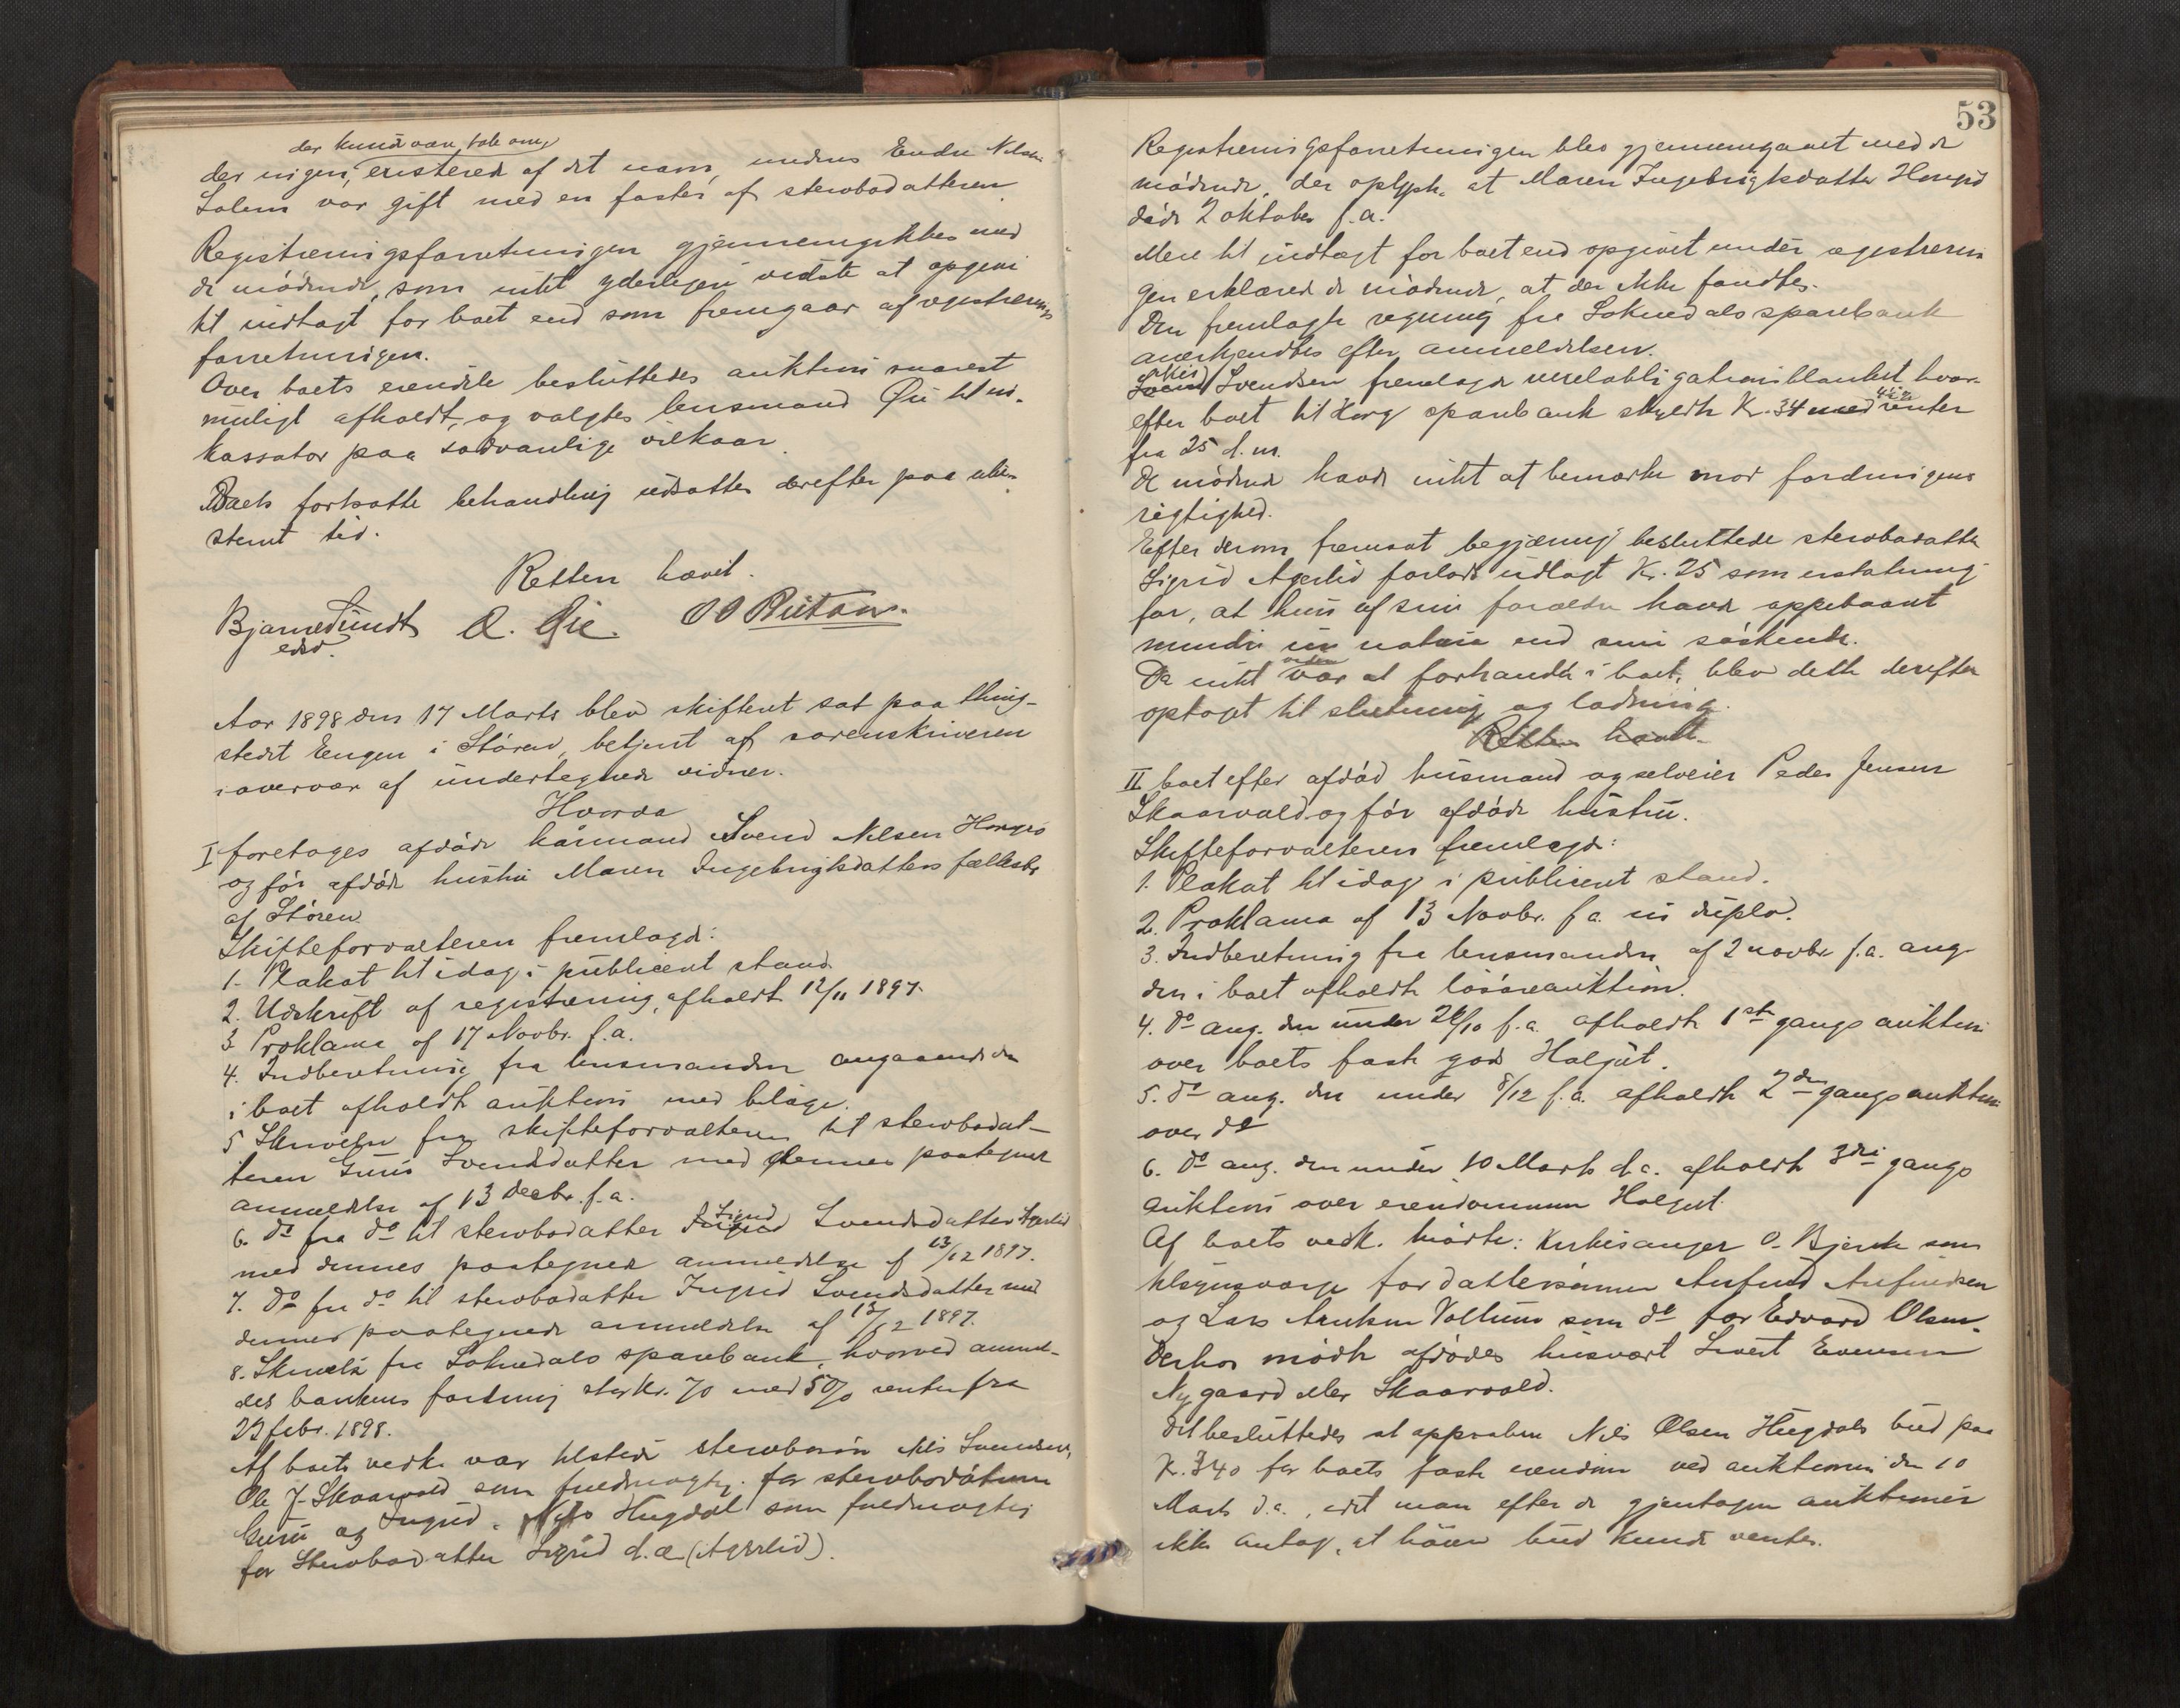 der kunde være tale om,
der ingen, existerede af det navn, medens Endre Nilsen
Solem var gift med en faster af stervbodatteren
Registreringsforretningen gjennemgikkes med
de mødende, som intet yderligere vidste at opgive
til indtægt for boet end som fremgaar af registrerings
forretningen.
Over boets eiendele besluttedes auktion snarest
muligt afholdt, og valgtes lensmand Øie til in-
kassator paa sædvanlige vilkaar.
Boets fortsatte behandling udsattes derefter paa ube-
stemt tid.
Retten hævet.
Bjarne Sundt
edsv.
O. Øie.
Aar 1898 den 17 Marts blev skifteret sat paa thing-
stedet Engen i Støren, betjent af sorenskriveren
i overvær af undertegnede vidner.
Hvorda
I foretoges afdøde kårmand Svend Nilsen
og før afdøde hustru Maren Ingebrigtsdatters fællesbo
af Støren.
Skifteforvalteren fremlagde:
1. Plakat til idag i publiceret stand
2. Udskrift af registrering, afholdt 12/11 1897.
3 Proklama af 17 Novbr. f.a.
4. Indberetning fra lensmanden angaaende den
i boet afholdte auktion med bilage.
5 Skrivelse fra skifteforvalteren til stervbodat-
teren Guru Svendsdatter med dennes paategnede
anmeldelse af 13 Decbr. f.a.
6. do fra do til stervbodatter Sigrid Svendsdatter Agerlid
med dennes paategnede anmeldelse af 13/12 1897.
7. do fra do til stervbodatter Ingrid Svendsdatter med
dennes paategnede anmeldelse af 13/12 1897.
8. Skrivelse fra Soknedals sparebank, hvorved anmel-
des bankens fordring stor Kr. 70 med 5% renter fra
23 febr. 1898.
Af boets vedk. var tilstede stervbosøn Nils Svendsen,
Ole J. Skaarvold som fuldmægtig for stervbodøtrene
Guru og Ingrid. Nils Hugdal som fuldmægtig
for Stervbodatter Sigrid d.æ (Agerlid).
53
Registreringsforretningen blev gjennemgaaet med de
mødende, der oplyste at Maren Ingebrigtsdatter
døde 2 oktober f.a.
Mere til indtægt for boet end opgivet under registrerin
gen erklærede de mødende, at der ikke fandtes.
Den fremlagte regning fra Soknedals sparebank
anerkjendtes efter anmeldelsen.
Nils Svendsen fremlagde vexelobligationsblanket hvor-
efter boet til Horg sparebank skyldte Kr. 34 med renter
fra 25 d.m.
De mødende havde intet at bemærke mod fordringens
rigtighed.
Efter derom fremsat begjæring besluttede stervbodatter
Sigrid Agerlid forlods udlagt Kr. 25 som erstatning
for, at hun af sine forældre havde oppebaaret
mindre in natura end sine søskende.
Da intet videre var at forhandle i boet, blev dette derefter
optaget til slutning og lodning.
Retten hævet.
II boet efter afdød husmand og selveier Peder Jensen
Skaarvold og før afdøde hustru.
Skifteforvalteren fremlagde:
1. Plakat til idag i publiceret stand.
2. Proklama af 13 Novbr. f.a. in duplo.
3. Indberetning fra lensmanden af 2 novbr f.a. ang.
den i boet afholdte løsøreauktion.
4. do ang. den under 26/10 f.a. afholdte 1ste gangs auktion
over boets faste gods Halgut.
5. do ang. den under 8/12 f.a. afholdte 2den gangs auktion
over do
6. do ang. den under 10 Marts d.a. afholdte 3die gangs
auktion over eiendommen Halgut.
Af boets vedk. mødte: Kirkesanger O. Bjerke som
tilsynsværge for dattersønnen Arnfind Arnfindsen
og Lars som do for Edvard Olsen.
Derhos mødte afdødes husvært Sivert Evensen
Nygaard eller Skaarvold.
Det besluttedes at approbere Nils Olsen Hugdals bud paa
Kr. 340 for boets faste eiendom ved auktionen den 10
Marts d.a., idet man efter de gjentagne auktioner
ikke antog, at høiere bud kunde ventes.